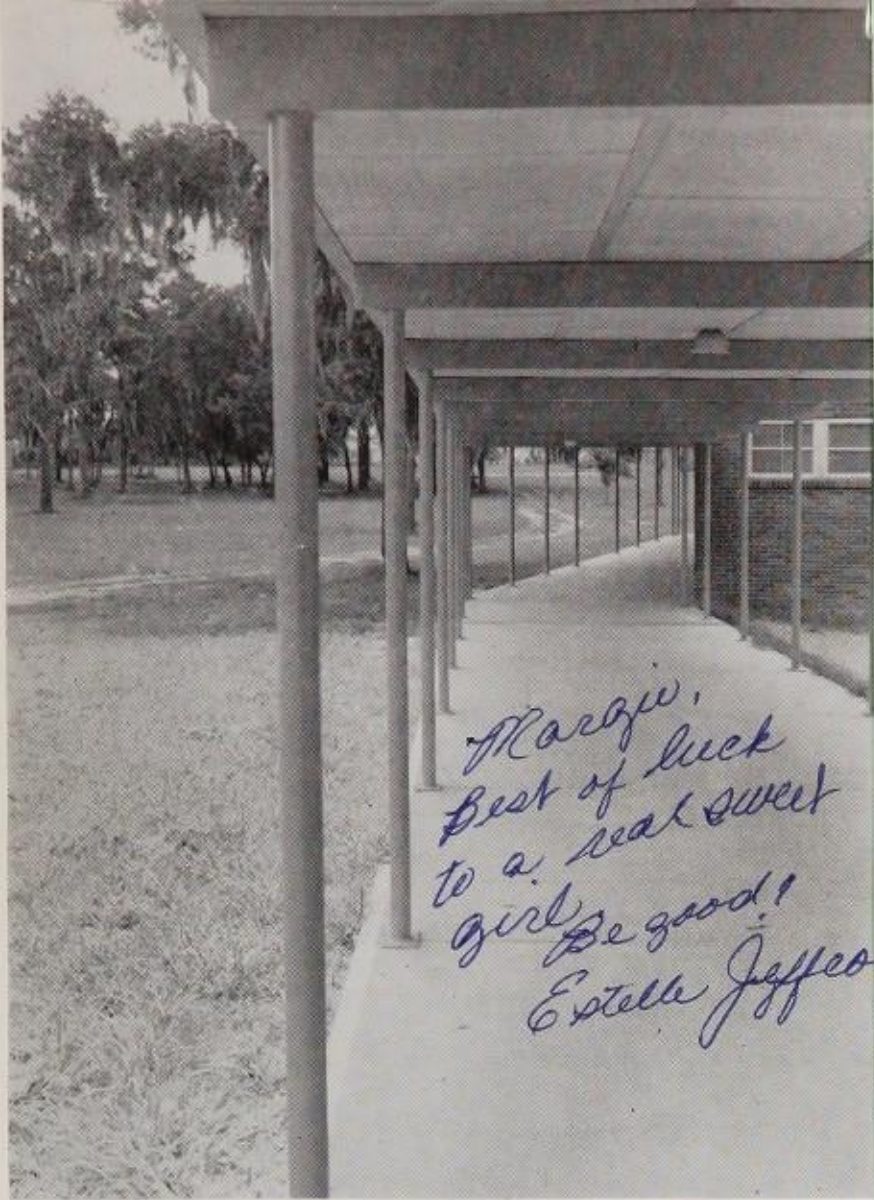 Margie,
Best of luck
to a real sweet
girl
Be good!
Estelle